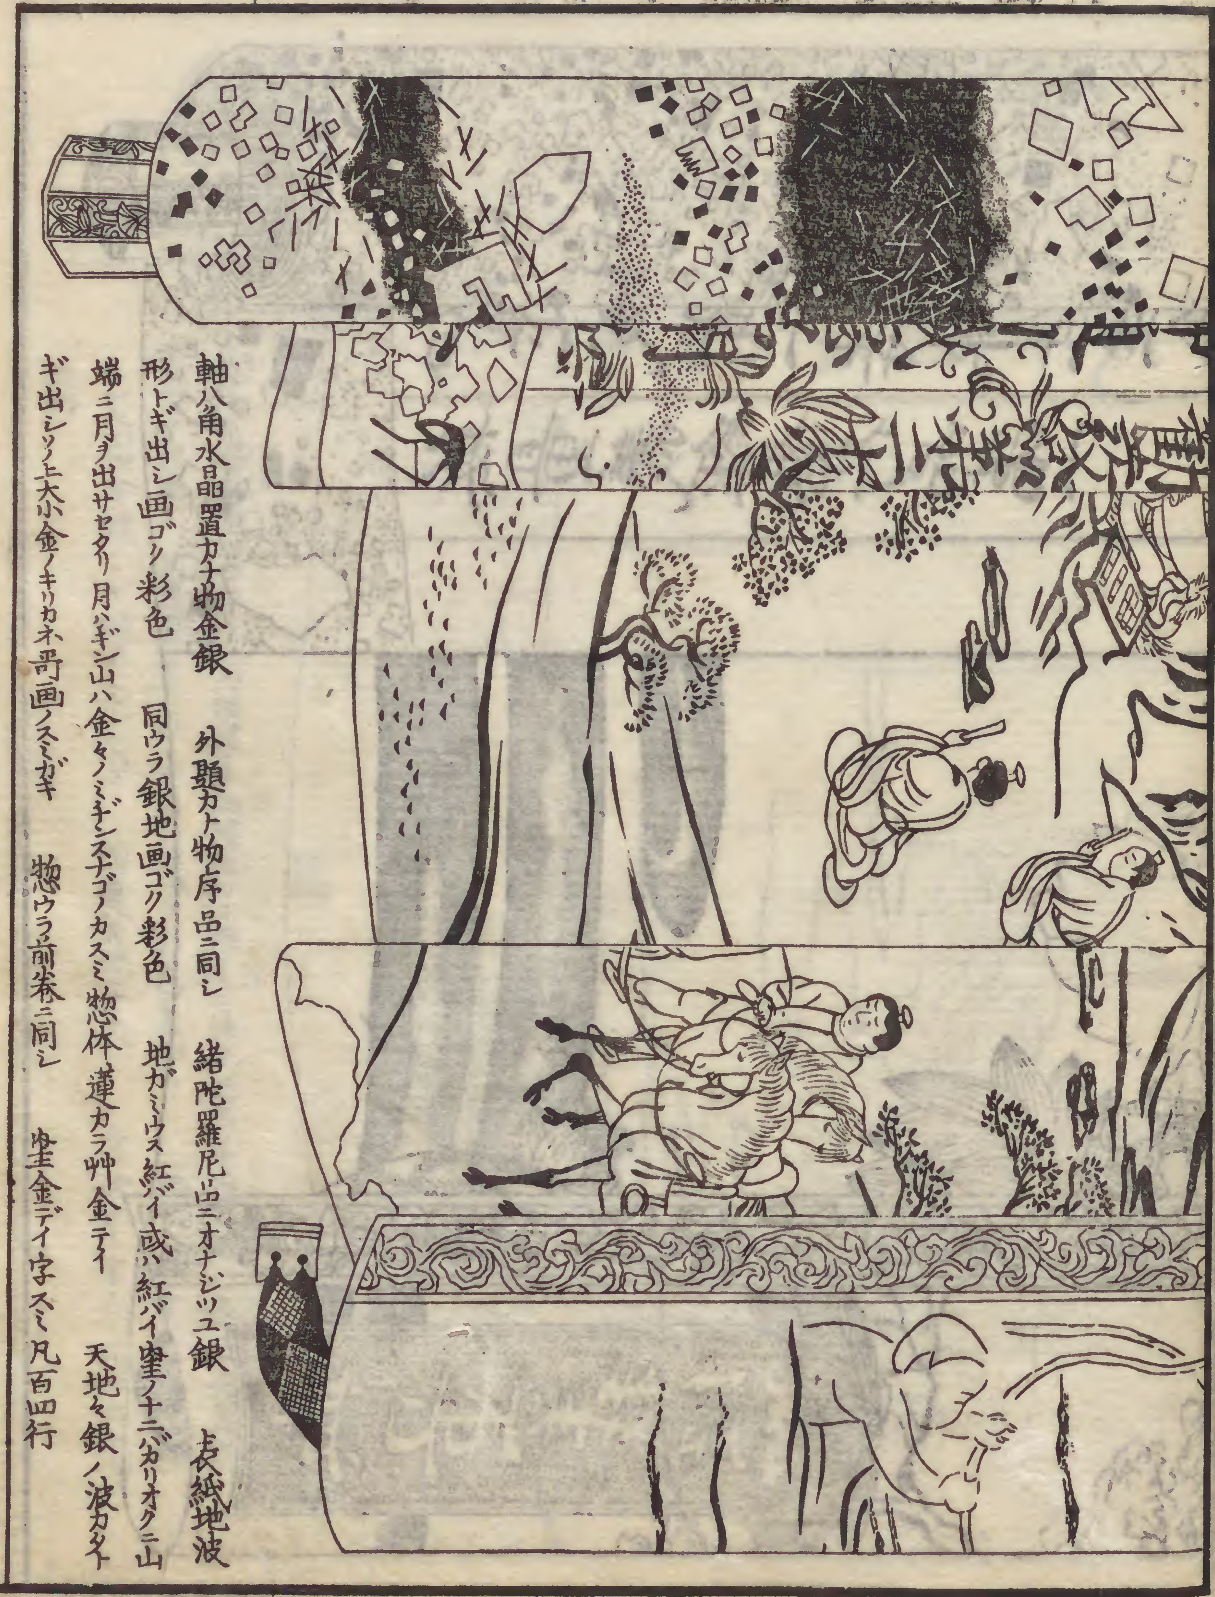 軸八角水晶置カナ物金銀　外題カナ物序品ニ同シ　緒陀羅尼品ニオナジツユ銀　表紙地波
形トギ出シ画ゴク彩色　同ウラ銀地画ゴク彩色　地ガミウス紅バイ或ハ紅バイ罫ノ十二バカリオクニ山
端ニ月ヲ出サセタリ月ハギン山ハ金々ノミヂンスナゴノカスミ惣体蓮カラ艸金デイ　天地々銀ノ波カタト
ギ出シソノ上大小金ノキリカネ画ノスミガキ　惣ウラ前巻ニ同シ　罫金デイ字スミ凡百四行
勧
第二